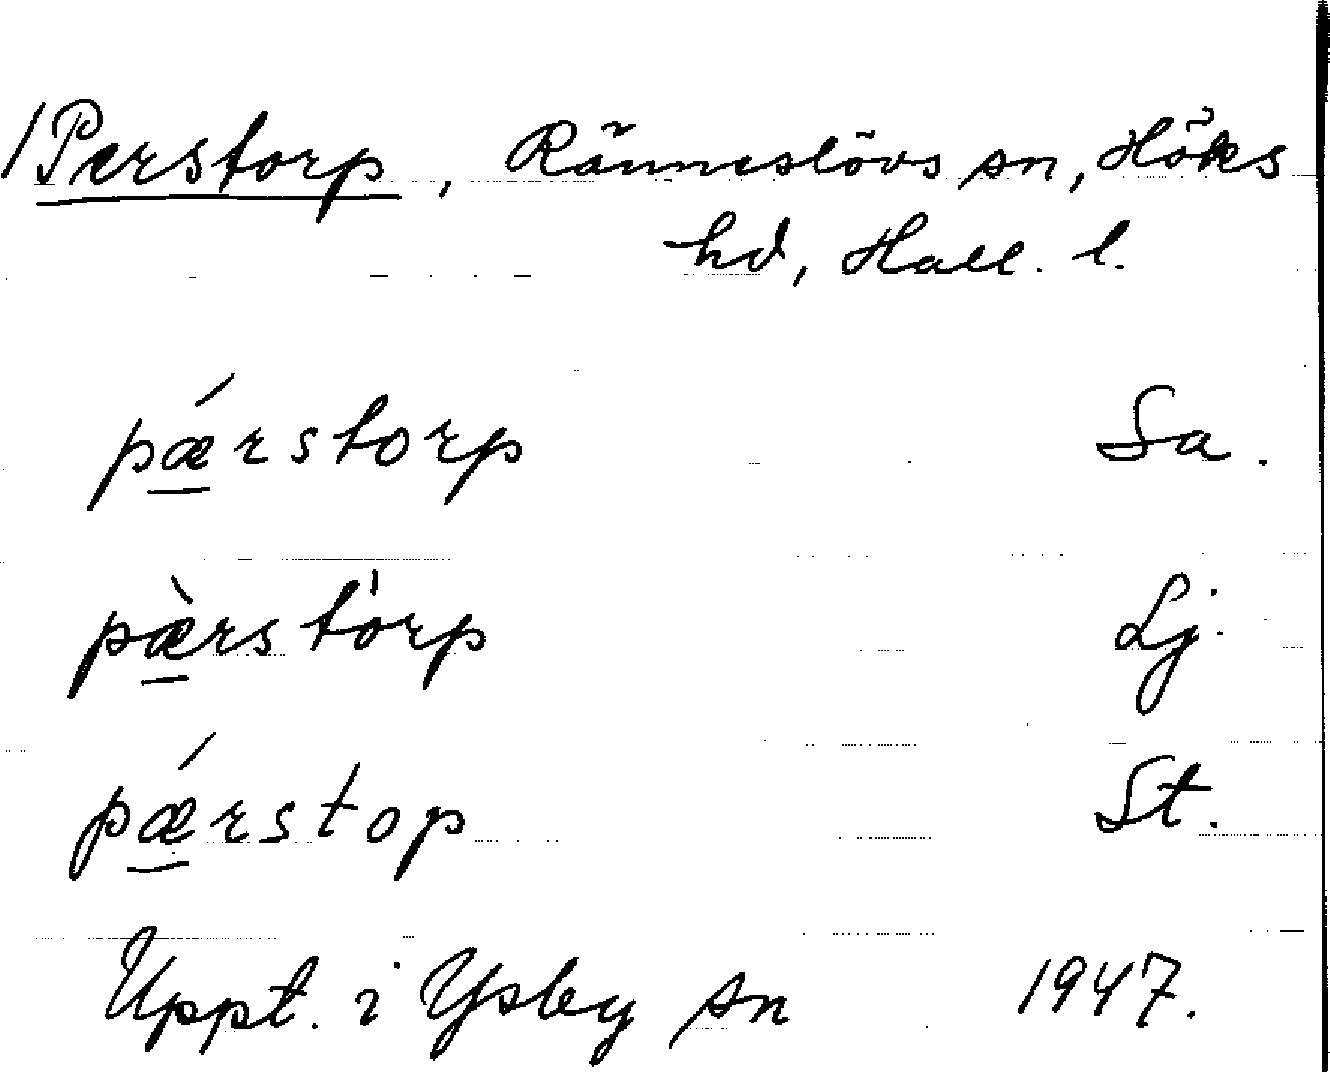 /Perstorp, Ränneslövs sn, Höks
hd, Hall. l.
pǽrstorp Sa.
pæ̀rstòrp Lj.
pǽrstop St.
Uppt. i Ysby sn 1947.